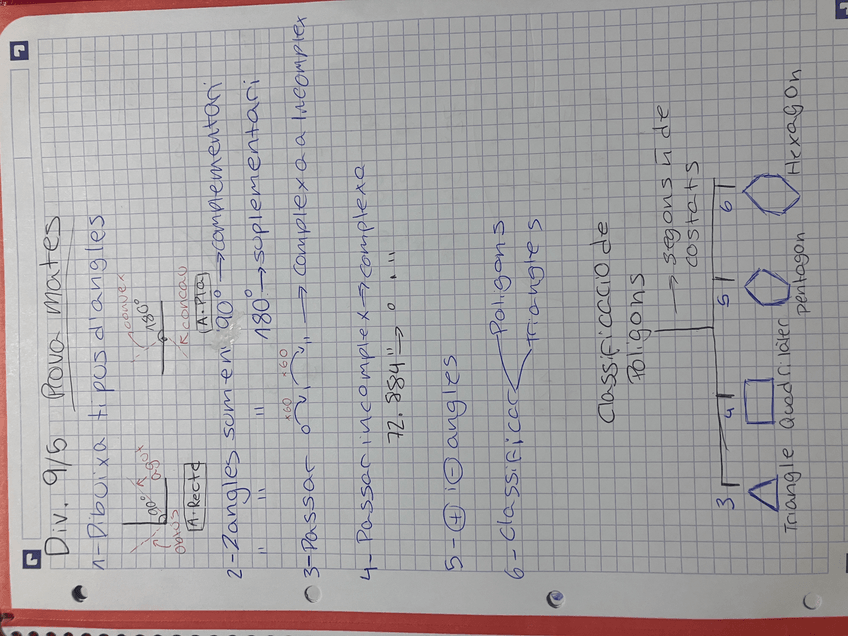 Div. 9/5 Prova mates
1-Dibuixa tipus d'angles
90° Agut
obtus
A.Recte
convex
180°
concau
A.Pla
2-2 angles sumen 90° → complementari
" " " 180° → suplementari
3-Passar ° ' " → complexa a incomplex
x60 x60
4-Passar incomplex → complexa
72.884" → ° ' "
5- + i - angles
6-Classificar Poligons
triangles
Classificacio de
Poligons
→ segons n de
costats
3 4 5 6
Triangle Quadrilàter pentagon Hexagon